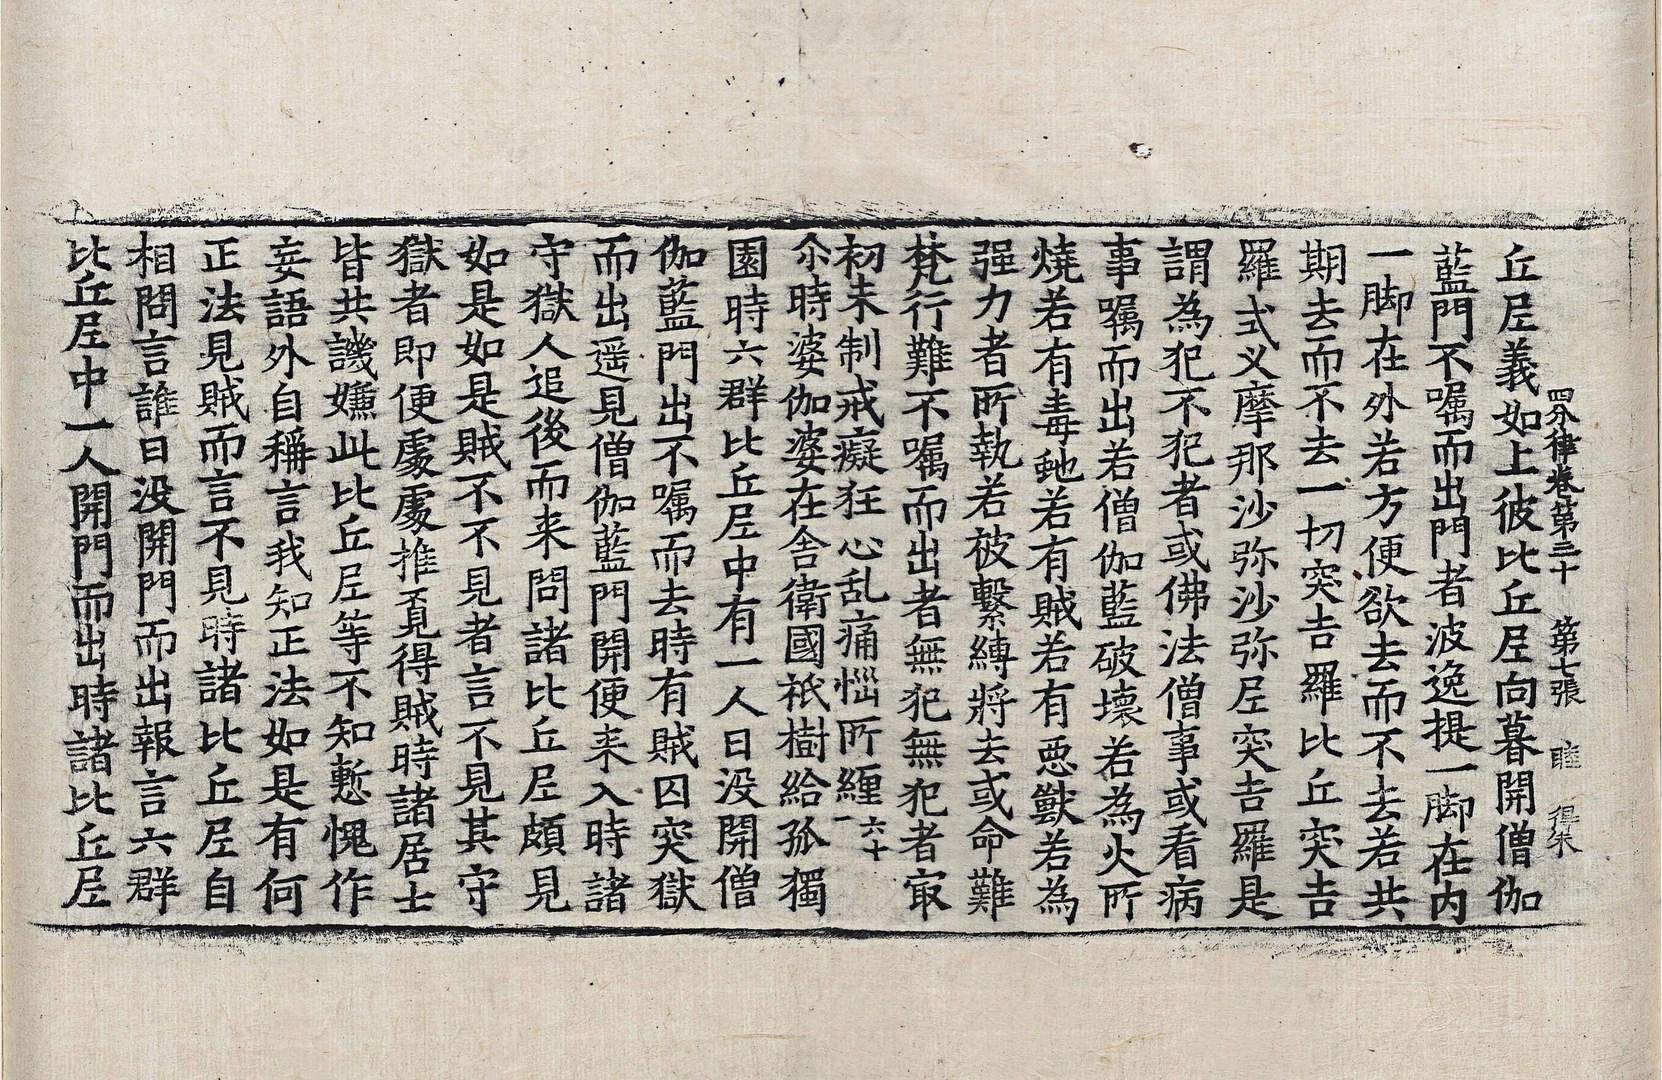 四分律卷第三十　第七張　睦
丘𡰱義如上彼比丘𡰱向暮開僧伽
藍門不嘱而出門者波逸提一脚在内
一脚在外若方便欲去而不去若共
期去而不去一切突吉羅比丘突吉
羅式义摩那沙弥沙弥𡰱突吉羅是
謂為犯不犯者或佛法僧事或看病
事嘱而出若僧伽藍破壞若為火所
燒若有毒虵若有賊若有惡獸若為
强力者所執若被繫縛將去或命難
梵行難不嘱而出者無犯無犯者㝡
初未制戒癡狂心乱痛惱所纏一六十
尒時婆伽婆在舎衛國祇樹給孤獨
園時六群比丘𡰱中有一人日没開僧
伽藍門出不嘱而去時有賊囚突獄
而出遥見僧伽藍門開便来入時諸
守獄人追後而来問諸比丘𡰱頗見
如是如是賊不不見者言不見其守
獄者即便䖏䖏推覔得賊時諸居士
皆共譏嫌此比丘𡰱等不知慙愧作
妄語外自稱言我知正法如是有何
正法見賊而言不見時諸比丘𡰱自
相問言誰日没開門而出報言六群
比丘𡰱中一人開門而出時諸比丘𡰱